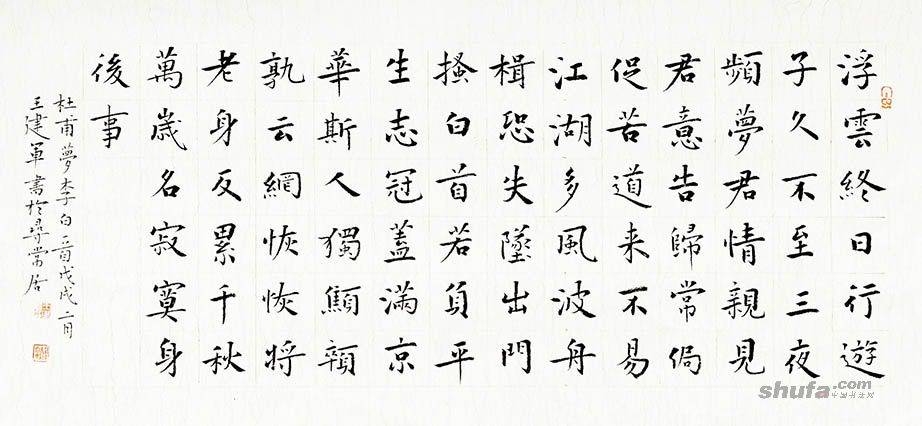 浮雲終日行遊
子久不至三夜
頻夢君情親見
君意告歸常侷
促苦道来不易
江湖多風波舟
楫恐失墜出門
搔白首若負平
生志冠蓋滿京
華斯人獨顦顇
孰云網恢恢將
老身反累千秋
萬歲名寂寞身
後事
杜甫夢李白二首戊戌二月
王建軍書於尋常居
shufa.com
中国书法网